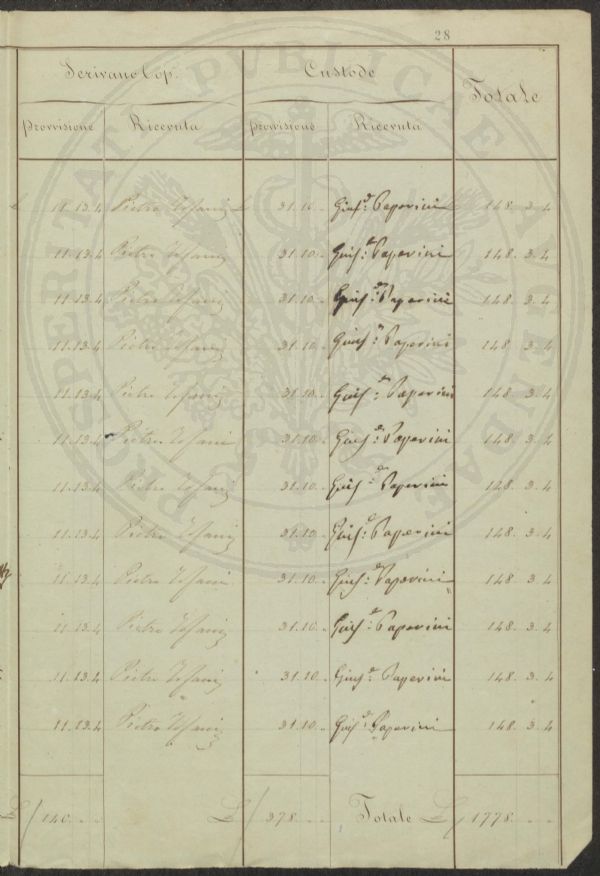 28
Scrivano Cop. Custode Totale
Provvisione Ricevuta Provvisione Ricevuta
£ 11.13.4 Pietro Tofani £ 31.10.. Giusᵉ: Paperini 148. 3. 4
11.13.4 Pietro Tofani 31.10.. Giusᵉ: Paperini 148. 3. 4
11.13.4 Pietro Tofani 31.10.. Giusᵉ: Paperini 148. 3. 4
11.13.4 Pietro Tofani 31.10.. Giusᵉ: Paperini 148. 3. 4
11.13.4 Pietro Tofani 31.10.. Giusᵉ: Paperini 148. 3. 4
11.13.4 Pietro Tofani 31.10.. Giusᵉ: Paperini 148. 3. 4
11.13.4 Pietro Tofani 31.10.. Giusᵉ: Paperini 148. 3. 4
11.13.4 Pietro Tofani 31.10.. Giusᵉ: Paperini 148. 3. 4
11.13.4 Pietro Tofani 31.10.. Giusᵉ: Paperini 148. 3. 4
11.13.4 Pietro Tofani 31.10.. Giusᵉ: Paperini 148. 3. 4
11.13.4 Pietro Tofani 31.10.. Giusᵉ: Paperini 148. 3. 4
11.13.4 Pietro Tofani 31.10.. Giusᵉ: Paperini 148. 3. 4
£ 140. .. .. £ 378. .. .. Totale £ 1778. .. ..
PROSPERITATI PUBLICAE AUGENDAE